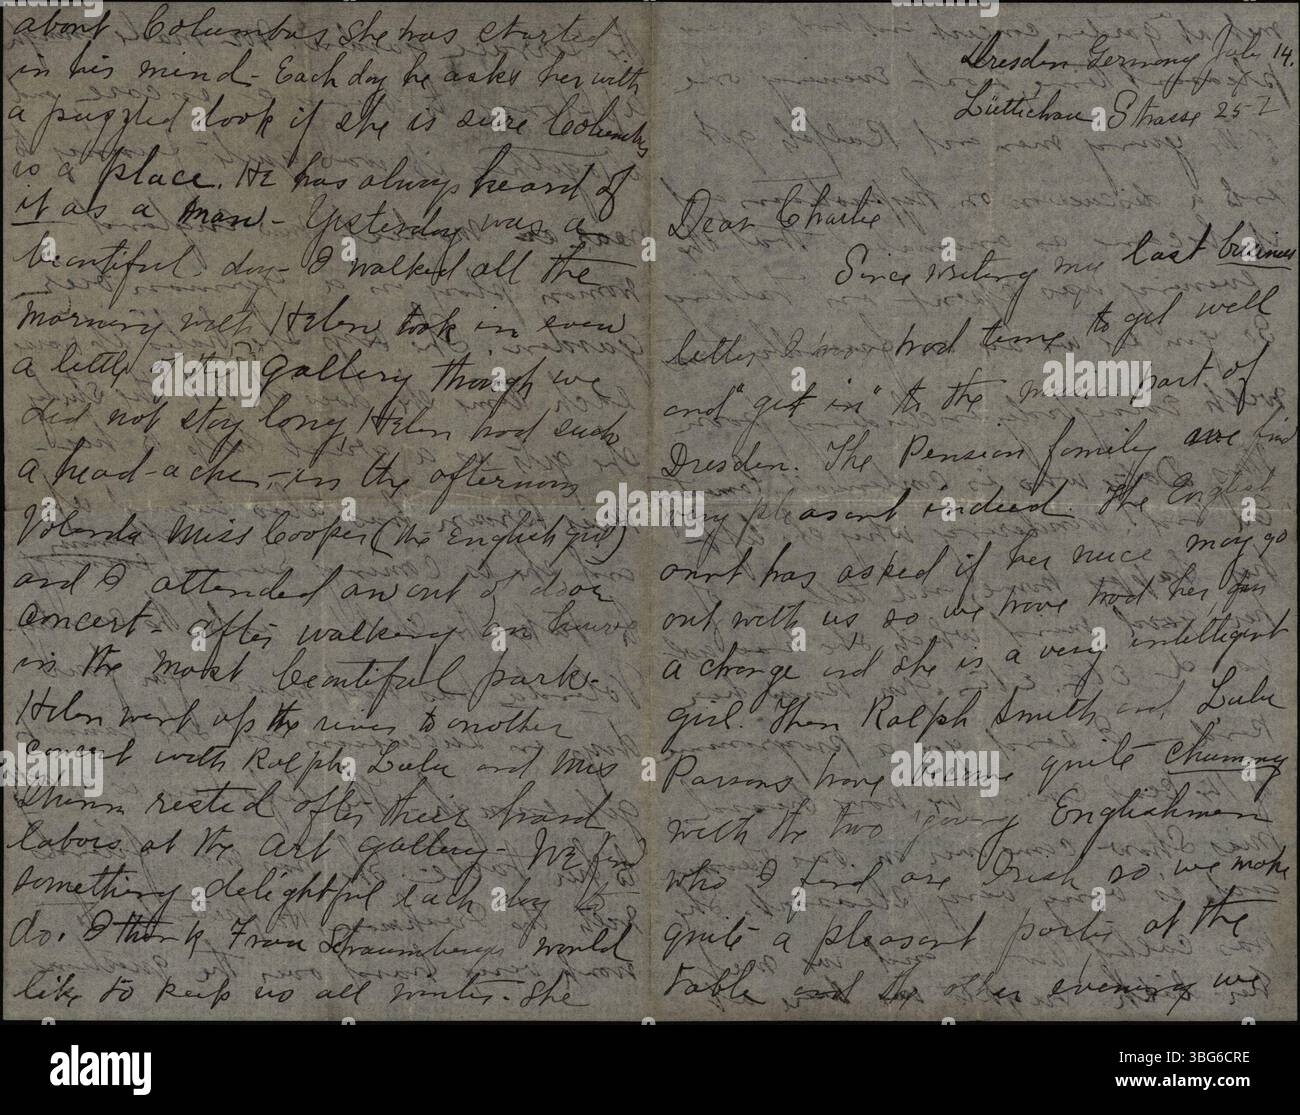 Dresden Germany July 14.
Lüttichau Strasse 25 I
Dear Charlie
Since writing my last business
letter I have had time to get well
and "get in" to the music part of
Dresden. The Pension family we find
very pleasant indeed. The English
aunt has asked if her niece may go
out with us so we have had her for
a change and she is a very intelligent
girl. Then Ralph Smith and Lulu
Parsons have become quite chummy
with the two young Englishmen
who I find are Irish so we make
quite a pleasant party at the
table and the other evening we
about Columbus she was started
in his mind - Each day he asks her with
a puzzled look if she is sure Columbus
is a place. He has always heard of
it as a man - Yesterday was a
beautiful day - I walked all the
morning with Helen took in even
a little of the gallery though we
did not stay long, Helen had such
a head-ache, - in the afternoon
Yolanda Miss Cooper (the English girl)
and I attended an out of door
concert - after walking an hour
in the most beautiful park -
Helen went up the river to another
concert with Ralph Lulu and Miss
rested after their hard
labors at the Art gallery - We find
something delightful each day to
do. I think Frau Straumbergs would
like to keep us all winter. She
alamy
a
Image ID: 3BG6CRE
www.alamy.com